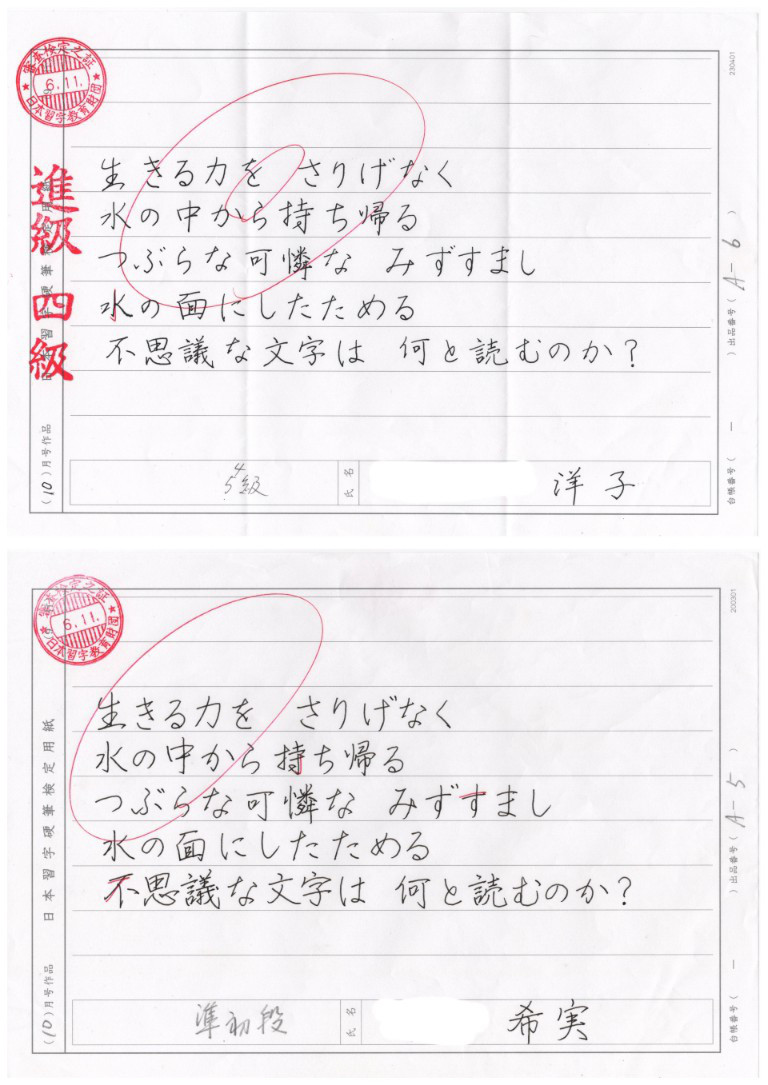 審査検定之証
6.11.
日本習字教育財団
進級 四級
230401
生きる力を さりげなく
水の中から持ち帰る
つぶらな可憐な みずすまし
水の面にしたためる
不思議な文字は 何と読むのか?
日本習字硬筆検定用紙
(10)月号作品
4
5級
氏名
洋子
出品番号( A-6 )
台帳番号( ー
審査検定之証
6.11.
日本習字教育財団
200301
生きる力を さりげなく
水の中から持ち帰る
つぶらな可憐な みずすまし
水の面にしたためる
不思議な文字は 何と読むのか?
日本習字硬筆検定用紙
(10)月号作品
準初段
氏名
希実
出品番号( A-5 )
台帳番号( ー